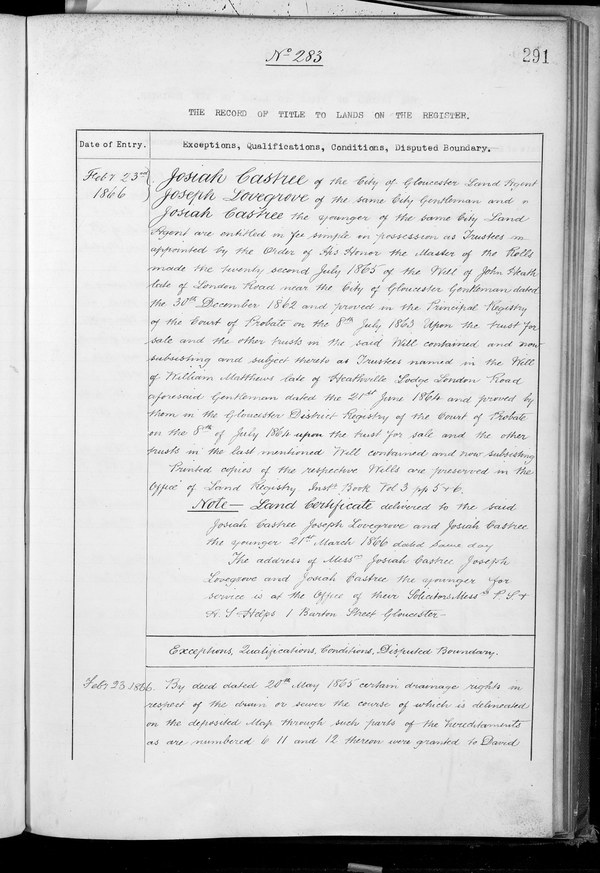 Nº 283
291
THE RECORD OF TITLE TO LANDS ON THE REGISTER.
Date of Entry.
Exceptions, Qualifications, Conditions, Disputed Boundary.
Feby 23rd
1866
Josiah Castree of the City of Gloucester Land Agent
Joseph Lovegrove of the same City Gentleman and
Josiah Castree the younger of the same City Land
Agent are entitled in fee simple in possession as Trustees
appointed by the Order of His Honor the Master of the Rolls
made the twenty second July 1865 of the Will of John Heath
late of London Road near the City of Gloucester Gentleman dated
the 30th December 1862 and proved in the Principal Registry
of the Court of Probate on the 8th July 1863 Upon the trust for
sale and the other trusts in the said Will contained and now
subsisting and subject thereto as Trustees named in the Will
of William Matthews late of Heathville Lodge London Road
aforesaid Gentleman dated the 21st June 1864 and proved by
them in the Gloucester District Registry of the Court of Probate
on the 8th of July 1864 upon the trust for sale and the other
trusts in the last mentioned Will contained and now subsisting
Printed copies of the respective Wills are preserved in the
Office of Land Registry Insts Book Vol 3 pp 5 & 6.
Note — Land Certificate delivered to the said
Josiah Castree Joseph Lovegrove and Josiah Castree
the younger 21st March 1866 dated same day
The address of Messrs Josiah Castree Joseph
Lovegrove and Josiah Castree the younger for
service is at the Office of their Solicitors Messrs
1 Barton Street Gloucester —
Exceptions, Qualifications, Conditions, Disputed Boundary.
Feby 23 1866.
By deed dated 20th May 1865 certain drainage rights in
respect of the drain or sewer the course of which is delineated
on the deposited Map through such parts of the hereditaments
as are numbered 6 11 and 12 thereon were granted to David